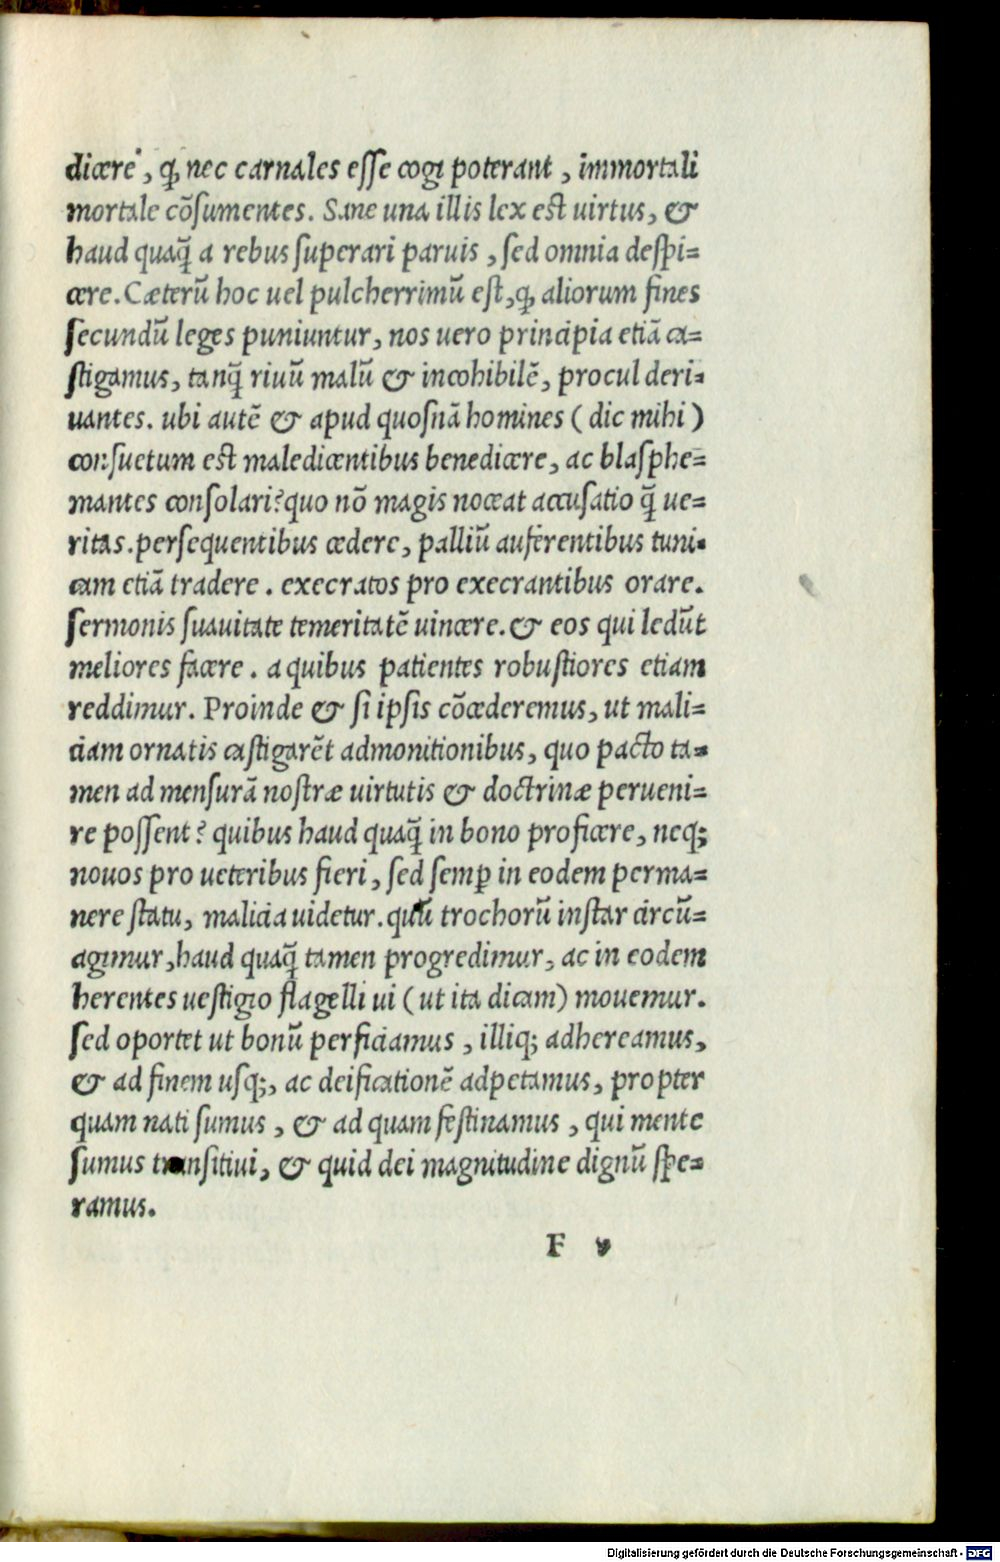 dicere, ꝙ nec carnales esse cogi poterant, immortali
mortale cõsumentes. Sane una illis lex est uirtus, &
haud quaq̃ a rebus superari paruis, sed omnia despi=
cere. Cæterũ hoc uel pulcherrimũ est, ꝙ aliorum fines
secundũ leges puniuntur, nos uero principia etiã ca=
stigamus, tanq̃ riuũ malũ & incohibilẽ, procul deri=
uantes. ubi autẽ & apud quosnã homines (dic mihi)
consuetum est maledicentibus benedicere, ac blasphe=
mantes consolari? quo nõ magis noceat accusatio q̃ ue=
ritas. persequentibus cedere, palliũ auferentibus tuni=
cam etiã tradere. execratos pro execrantibus orare.
sermonis suauitate temeritatẽ uincere. & eos qui ledũt
meliores facere. a quibus patientes robustiores etiam
reddimur. Proinde & si ipsis cõcederemus, ut mali=
ciam ornatis castigarẽt admonitionibus, quo pacto ta=
men ad mensurã nostræ uirtutis & doctrinæ perueni=
re possent? quibus haud quaq̃ in bono proficere, neq;
nouos pro ueteribus fieri, sed semꝑ in eodem perma=
nere statu, malicia uidetur. quũ trochorũ instar circũ=
agimur, haud quaq̃ tamen progredimur, ac in eodem
herentes uestigio flagelli ui (ut ita dicam) mouemur.
sed oportet ut bonũ perficiamus, illiq; adhereamus,
& ad finem usq;, ac deificationẽ adpetamus, propter
quam nati sumus, & ad quam festinamus, qui mente
sumus transitiui, & quid dei magnitudine dignũ spe=
ramus.
F v
Digitalisierung gefördert durch die Deutsche Forschungsgemeinschaft - DFG